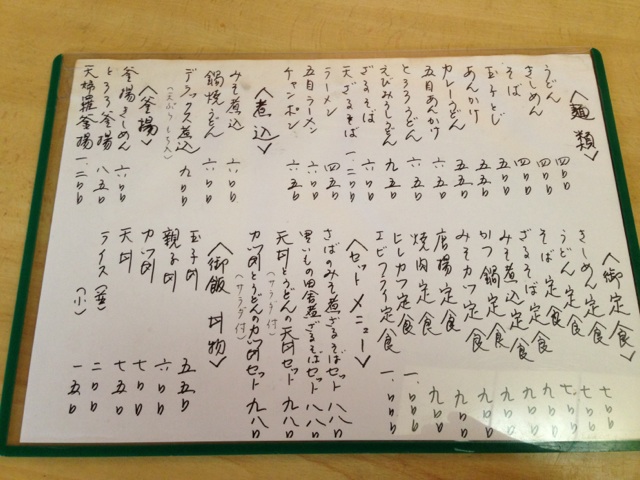 〈麺類〉
うどん 四〇〇
きしめん 四〇〇
そば 四〇〇
玉子とじ 五五〇
あんかけ 五五〇
カレーうどん 五五〇
五目あんかけ 六五〇
とろろうどん 六五〇
えびみそうどん 九五〇
ざるそば 六〇〇
天ざるそば 一、二〇〇
ラーメン 四五〇
五目ラーメン 六五〇
チャンポン 六五〇
〈煮込〉
みそ煮込 六〇〇
鍋焼うどん 六〇〇
デラックス煮込 九〇〇
(天ぷらもち入)
〈釜揚〉
釜揚きしめん 六〇〇
とろろ釜揚 八五〇
天婦羅釜揚 一、二〇〇
〈御定食〉
きしめん定食 七〇〇
うどん定食 七〇〇
そば定食 七〇〇
ざるそば定食 九〇〇
みそ煮込定食 九〇〇
かつ鍋定食 九〇〇
みそカツ定食 九〇〇
唐揚定食 九〇〇
焼肉定食 九〇〇
ヒレカツ定食 一、〇〇〇
エビフライ定食 一、〇〇〇
〈セットメニュー〉
さばのみそ煮ざるそばセット 八八〇
里いもの田舎煮ざるそばセット 八八〇
天丼とうどんの天丼セット 九八〇
(サラダ付)
カツ丼とうどんのカツ丼セット 九八〇
(サラダ付)
〈御飯丼物〉
玉子丼 五五〇
親子丼 六〇〇
カツ丼 七〇〇
天丼 七五〇
ライス 二〇〇
(小) 一五〇